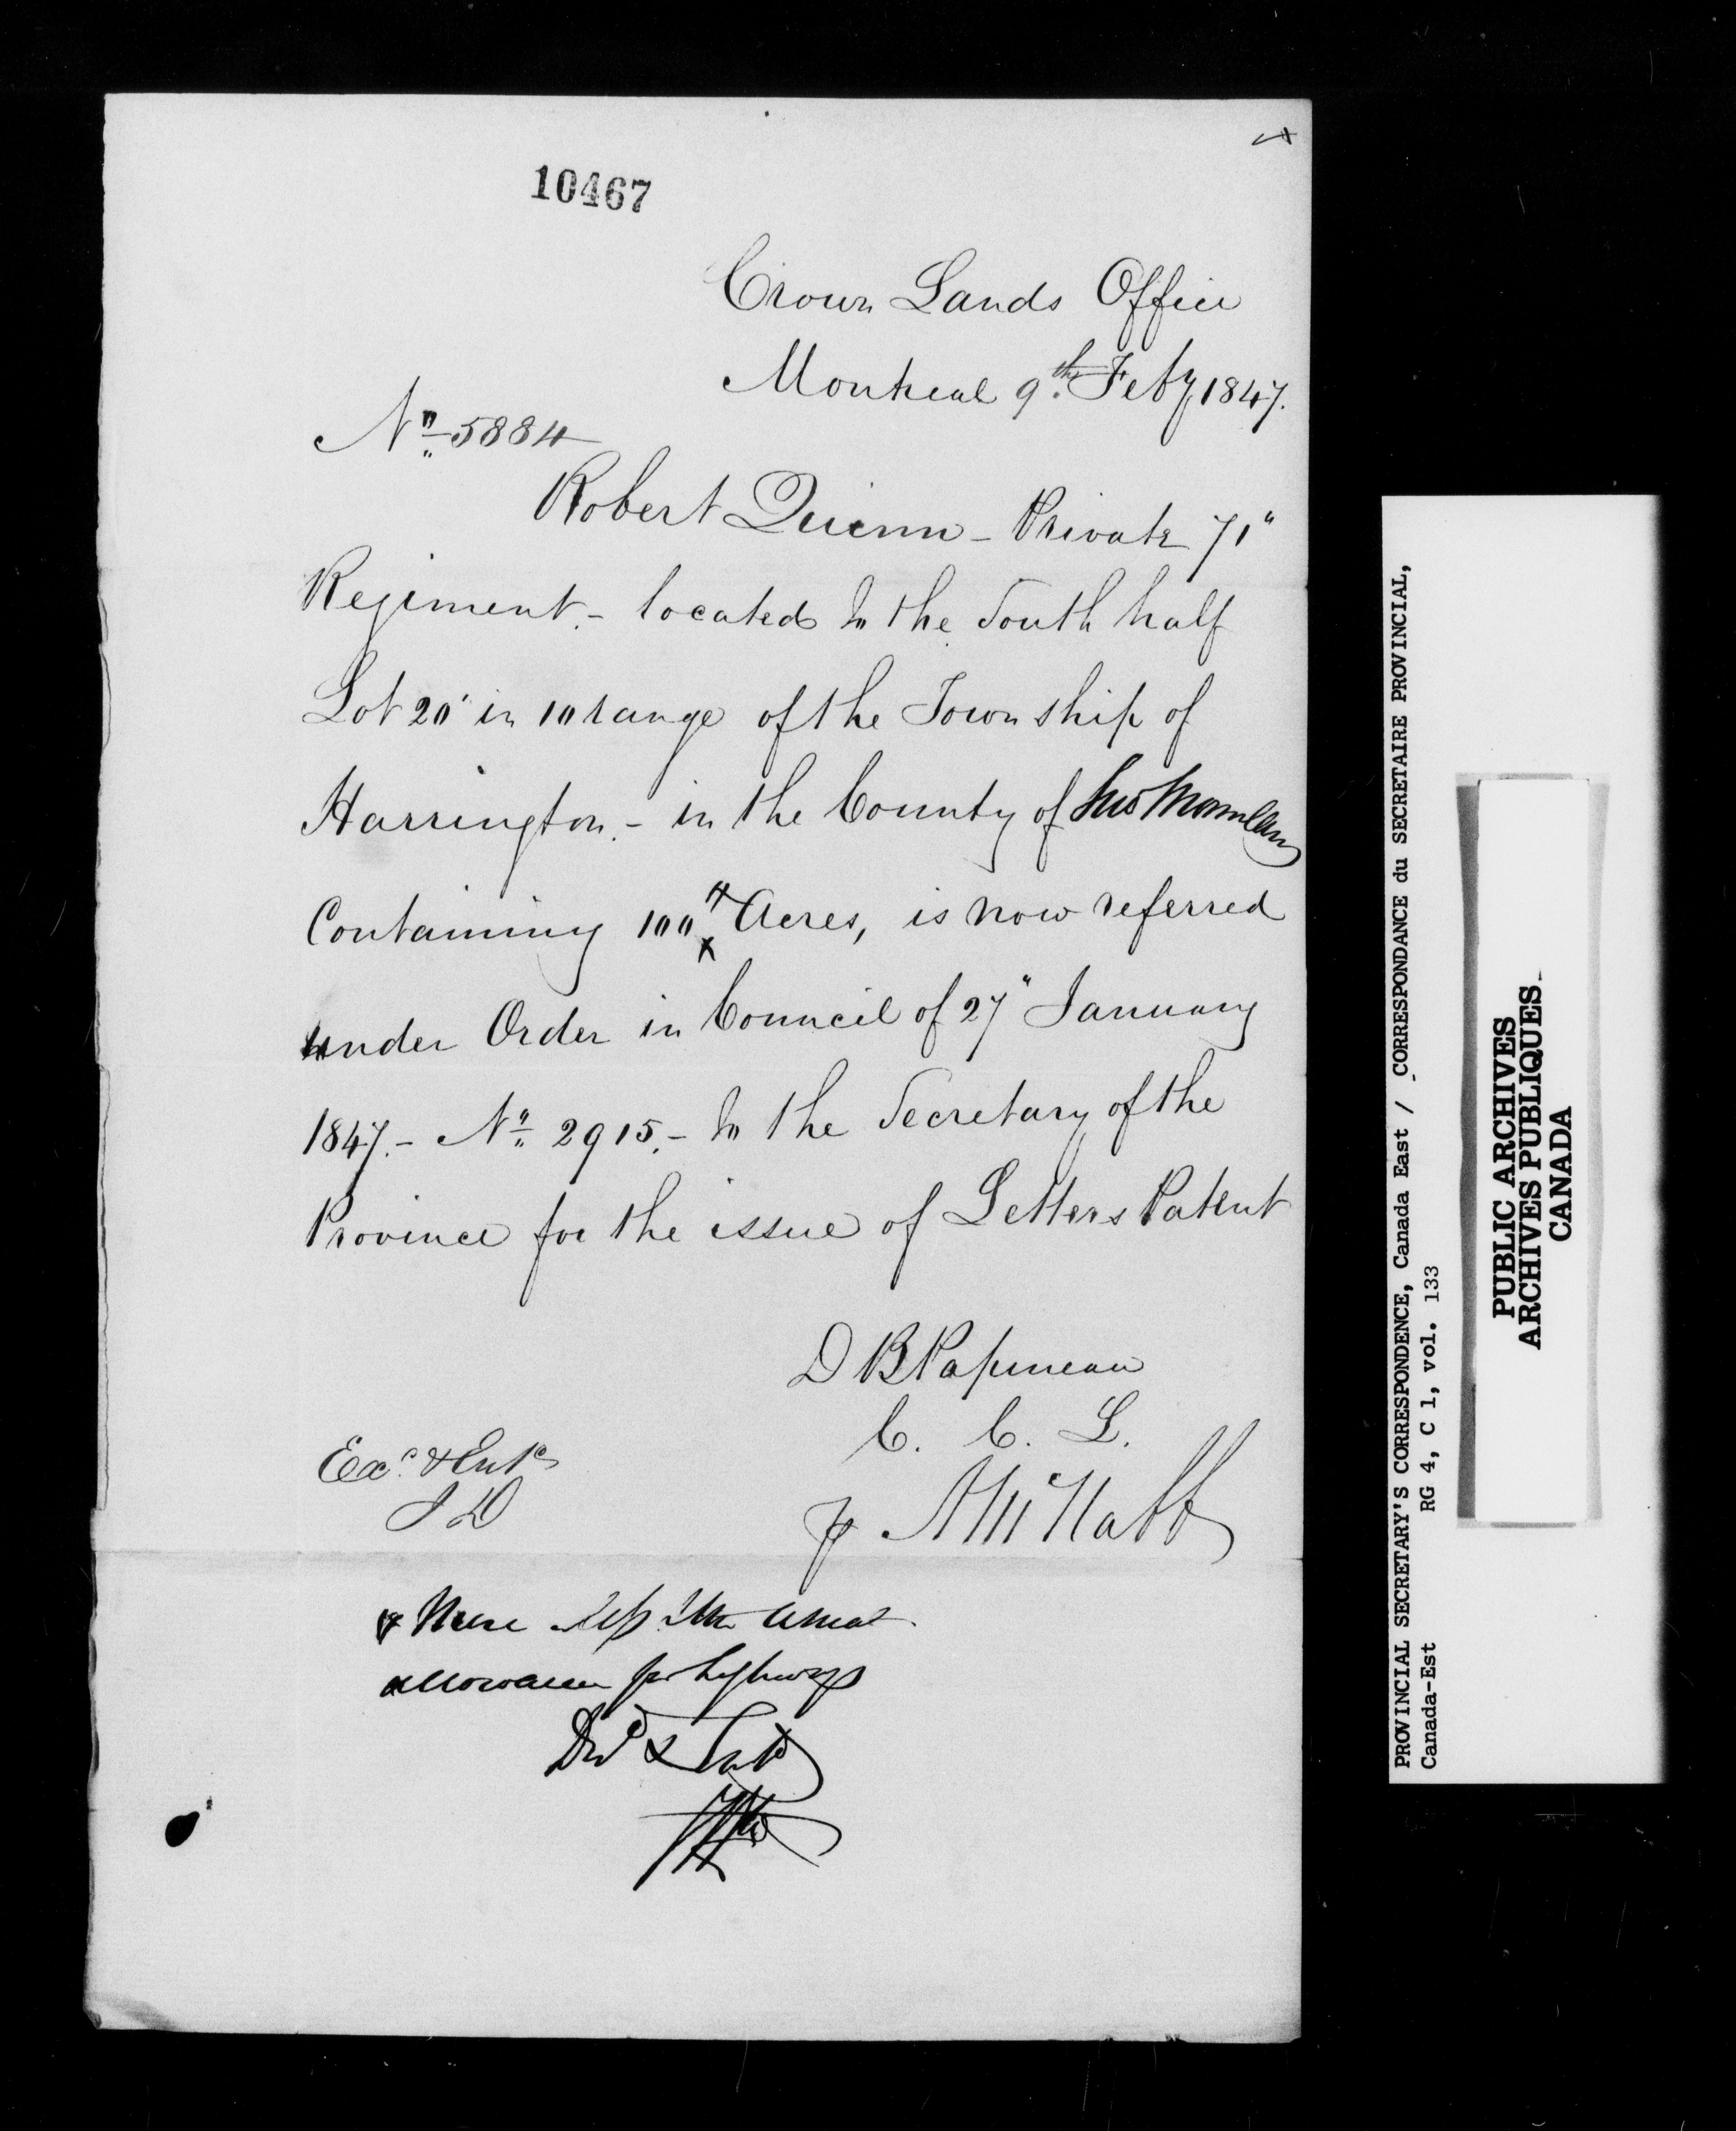 10467
Crown Lands Office
Montreal 9th. Feby 1847.
No. 5884
Robert Quinn - Private 71"
Regiment. - located to the South half
Lot 20" in 10 range of the Township of
Harrington. - in the County of Two Mountains
Containing 100 Acres, is now referred
under Order in Council of 27" January
1847. - No. 2915. - to the Secretary of the
Province for the issue of Letters Patent
D B Papineau
C. C. L.
p A McNabb
Exd. & Entd
J D
x More or less the usual
allowance for highways
PROVINCIAL SECRETARY'S CORRESPONDENCE, Canada East / CORRESPONDANCE du SECRETAIRE PROVINCIAL,
Canada-Est RG 4, C 1, vol. 133
PUBLIC ARCHIVES
ARCHIVES PUBLIQUES
CANADA